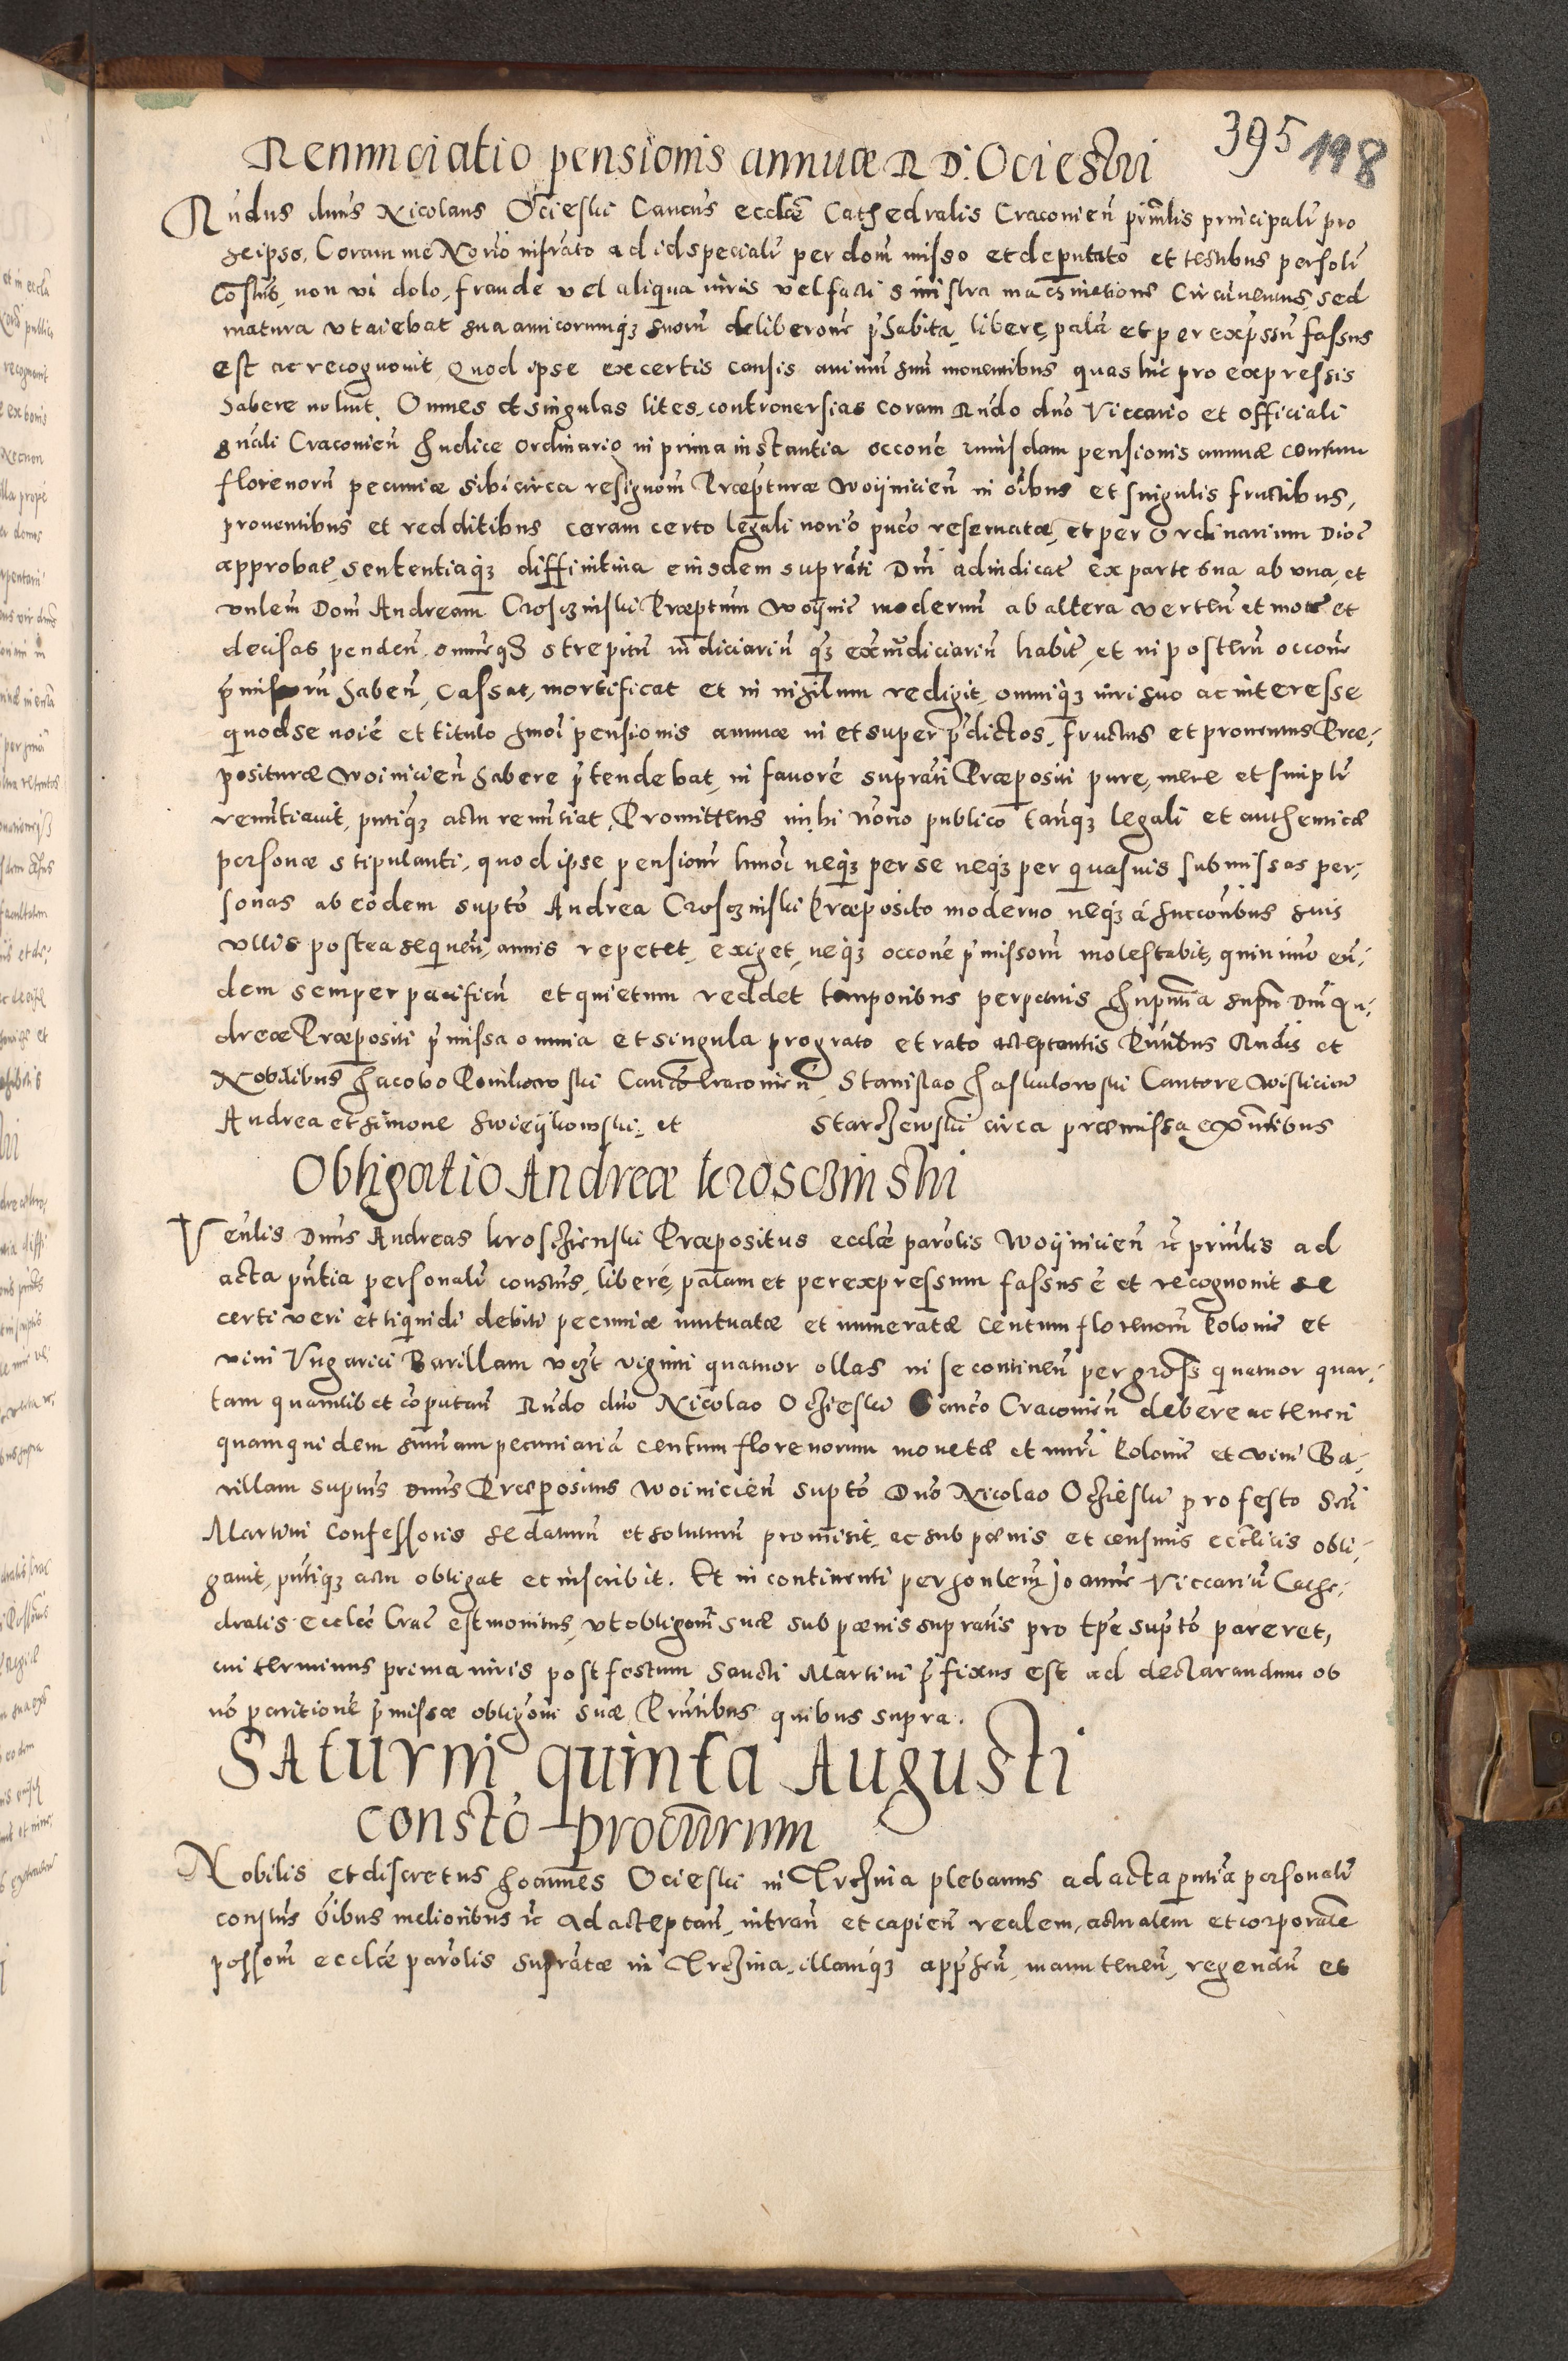 395 198
Renunciatio pensionis annuæ R D. Ocieski
Rndus dnus Nicolaus Ocieski Cancus eccliæ Cathedralis Craconien prnlis principalr pro
seipso, Coram me Norio infrato ad id specialr per dom misso et deputato et testibus personlr
Constus, non vi dolo, fraude vel aliqua iuris vel facti sinistra machinatione circumuentus, sed
matura vt aiebat sua amicorumq3 suoru deliberone prhabita, libere, pala et per expssu fassus
est ac recognouit Quod ipse ex certis causis animu suu mouentibus quas hic pro expressis
habere noluit, Omnes et singulas lites, controuersias coram Rndo dno Viccario et Officiali
gnali Craconien Judice ordinario in prima instantia occone cuiusdam pensionis annuæ centum
florenoru pecuniæ sibi circa resignom Præpturæ Woijnicien in oibus et singulis fructibus,
prouentibus et redditibus coram certo legali norio puco reseruatæ, et per Ordinarium Dioc
approbat, sententiaq3 diffinitiua eiusdem suprati Dni adiudicat ex parte sua ab vna, et
vnlem Dom Andream Crosczniski Præptum Woijnic modernu ab altera vertem et mot et
decisas penden, omneq3 strepitu iudiciariu q3 extraiudiciariu habit, et in posteru occone
pmissoru haben, cassat, mortificat et in nihilum redigit, omniq3 iuri suo ac interesse
quod se noie et titulo hmoi pensionis annuæ in et super prdictos, fructus et prouentus Præ,
posituræ Woinicien habere prtendebat, in fauore suprati Præpositi pure, mere et simplr
renuntiauit, pntiq3 actu renuntiat, Promittens mihi Norio publico tanq3 legali et authenticæ
personæ stipulanti, quod ipse pensione hmoi neq3 per se neq3 per quasuis submissas per,
sonas ab eodem supto Andrea Crosczniski Præposito moderno neq3 a succoribus suis
vllis postea sequen, annis repetet, exiget, neq3 occone prmissoru molestabit, quinimo eu,
dem semper pacificu et quietum reddet temporibus perpetuis In pntia supn Dni An,
dreæ Præpositi prmissa omnia et singula pro grato et rato acceptantis Pntibus Rndis et
Nobilibus Jacobo Canco Craconien, Stanislao Jaskulowski Cantore Wislicien
Andrea et Simone Swieijkowski, et Starczewski circa præmissa exntibus
Obligatio Andreæ kroscznski
Venlis Dnus Andreas kroschienski Præpositus eccliæ parolis Woijnicien rc prnlis ad
acta pntia personalr constus, libere, palam et per expressum fassus e et recognouit se
certi veri et liquidi debiti pecuniæ mutuatæ et numeratæ centum florenoru Polonic et
vini Vngarici Barillam vczt viginti quatuor ollas in se continen per gross quatuor quar,
tam quamlibet coputan Rndo dno Nicolao Ochieski Canco Craconien debere ac teneri
quamquidem summam pecuniaria centum florenorum monetæ et nuri Polonic et vini Ba,
rillam suptus dnus Præpositus Woinicien supto Dno Nicolao Ochieski pro festo Scti
Martini Confessoris se daturu et soluturu promisit, ac sub pœnis et censuris ecclicis obli,
gauit, pntiq3 actu obligat et inscribit. Et in continenti per honlem Joanne Viccariu Cathe,
dralis eccliæ Crac est monitus, vt obligoni suæ sub pœnis supratis pro tpe supto pareret,
cui terminus prima iuris post festum Sancti Martini prfixus est ad declarandum ob
no paritione prmissæ obligoni suæ Pntibus quibus supra.
Saturni quinta Augusti
Consto procurum
Nobilis et discretus Joannes Ocieski in Trczinia plebanus ad acta pntia personalr
constus oibus melioribus rc ad acceptan, intran et capien realem, actualem et corporale
possom eccliæ parolis supratæ in Trczinia, illamq3 apprhen, manutenen, regendu et